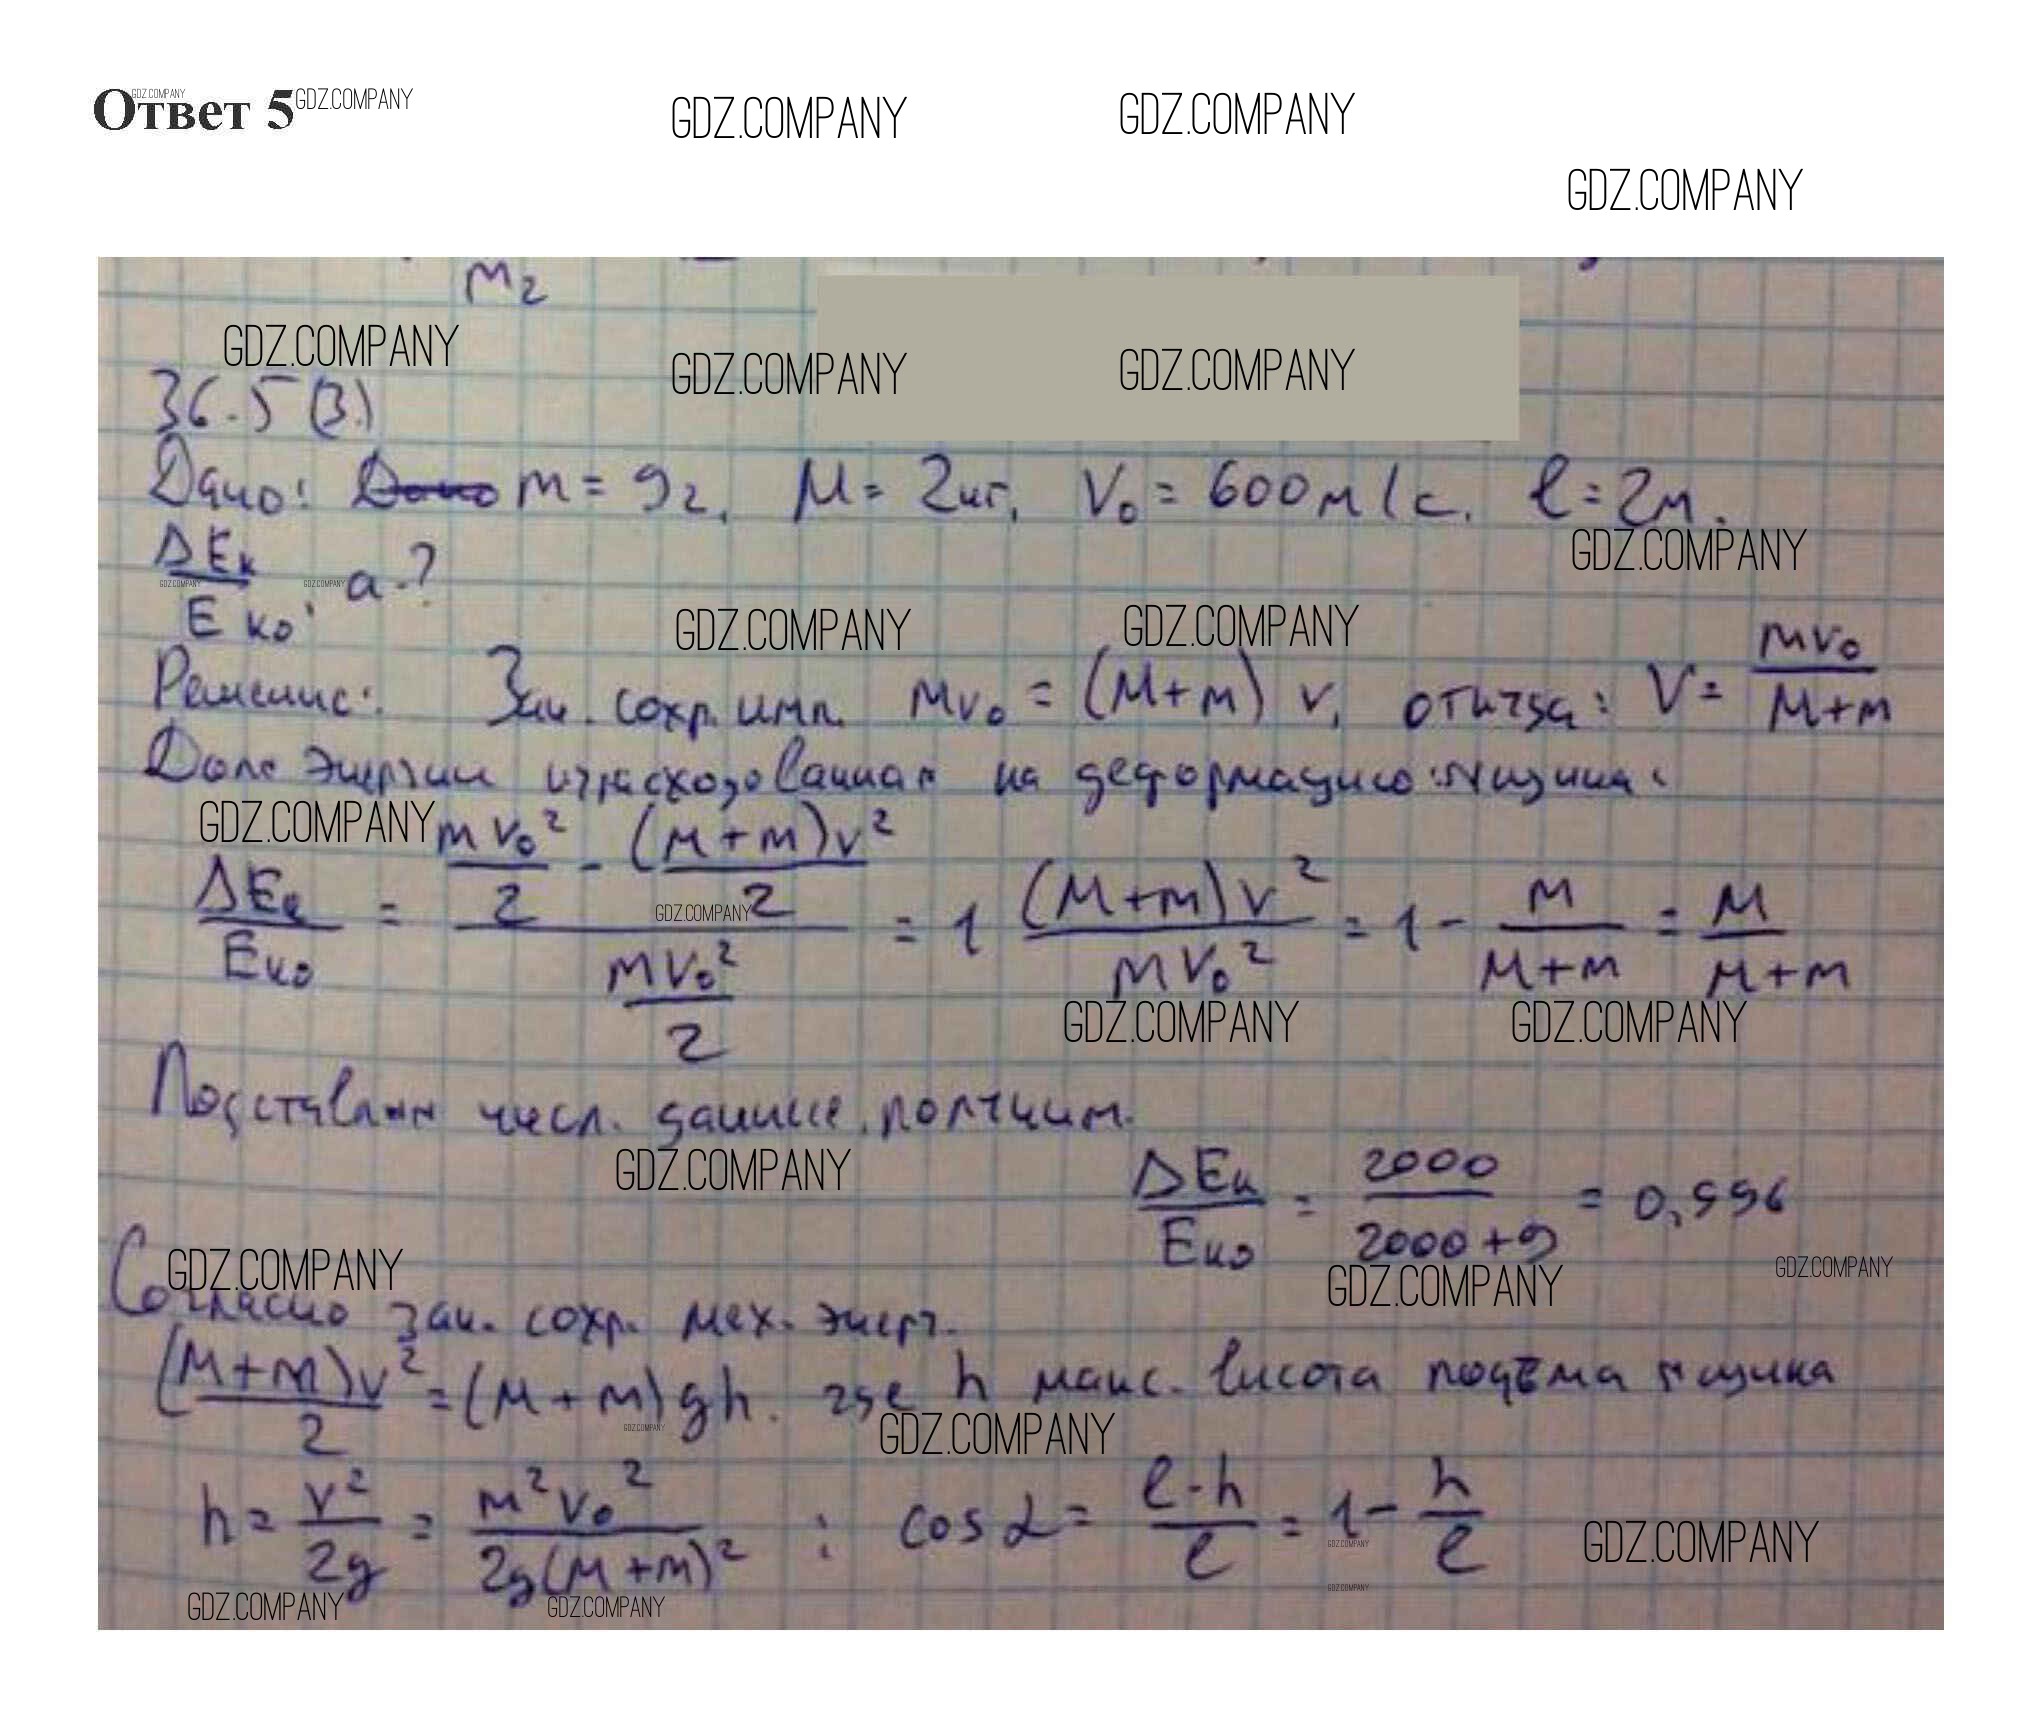 Ответ 5
GDZ.COMPANY GDZ.COMPANY
GDZ.COMPANY GDZ.COMPANY
GDZ.COMPANY
m2
GDZ.COMPANY GDZ.COMPANY GDZ.COMPANY
36.5(3.)
Дано: m = 9г, M = 2кг, V0 = 600м/с. l = 2м.
GDZ.COMPANY
ΔEк/Eко, a-?
GDZ.COMPANY GDZ.COMPANY
GDZ.COMPANY GDZ.COMPANY
Решение: Зак. сохр. имп. mv0 = (M+m) v, откуда: V = mv0/(M+m)
Доля энергии израсходованная на деформацию ящика:
GDZ.COMPANY
ΔEк/Eко = (mv0²/2 - (M+m)v²/2)/(mv0²/2) = 1 (M+m)v²/mv0² = 1 - m/(M+m) = M/(M+m)
GDZ.COMPANY
GDZ.COMPANY GDZ.COMPANY
Подставляя числ. данные, получим.
GDZ.COMPANY
ΔEк/Eко = 2000/(2000+9) = 0,996
GDZ.COMPANY GDZ.COMPANY GDZ.COMPANY
Согласно зак. сохр. мех. энерг.
(M+m)v²/2 = (M+m)gh. где h макс. высота подъёма ящика
GDZ.COMPANY GDZ.COMPANY
h = v²/2g = m²v0²/2g(M+m)² ; cos α = (l-h)/l = 1 - h/l
GDZ.COMPANY GDZ.COMPANY
GDZ.COMPANY
GDZ.COMPANY GDZ.COMPANY